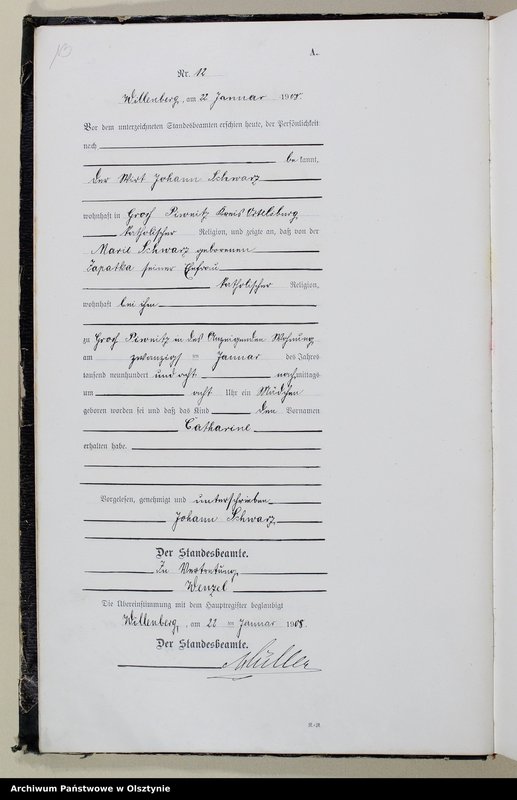 A.
Nr. 12
Willenberg, am 22 Januar 1908.
Vor dem unterzeichneten Standesbeamten erschien heute, der Persönlichkeit
nach
bekannt,
der Wirt Johann Schwarz
wohnhaft in Groß Piwnitz Kreis Ortelsburg
katholischer Religion, und zeigte an, daß von der
Marie Schwarz geborenen
Zapatka seiner Ehefrau
katholischer Religion,
wohnhaft bei ihm
zu Groß Piwnitz in des Anzeigenden Wohnung
am zwanzigsten Januar des Jahres
tausend neunhundert und acht nachmittags
um acht Uhr ein Mädchen
geboren worden sei und daß das Kind den Vornamen
Catharine
erhalten habe.
Vorgelesen, genehmigt und unterschrieben
Johann Schwarz
Der Standesbeamte.
In Vertretung
Wenzel
Die Übereinstimmung mit dem Hauptregister beglaubigt
Willenberg, am 22 ten Januar 1908.
Der Standesbeamte.
Müller
Archiwum Państwowe w Olsztynie